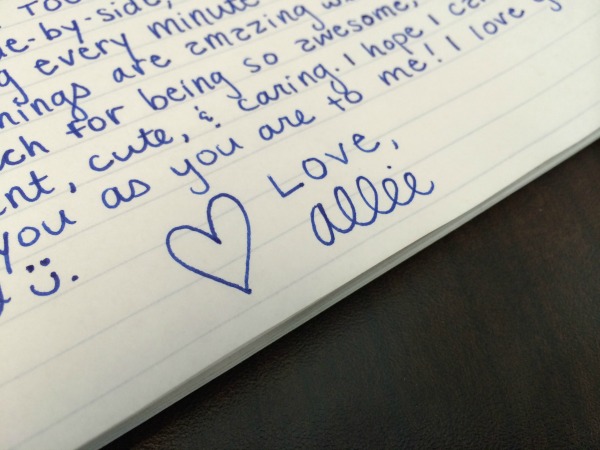 side-by-side,
every minute
things are amazing
for being so awesome,
cute, & caring. I hope I
you as you are to me! I love
Love,
Allie